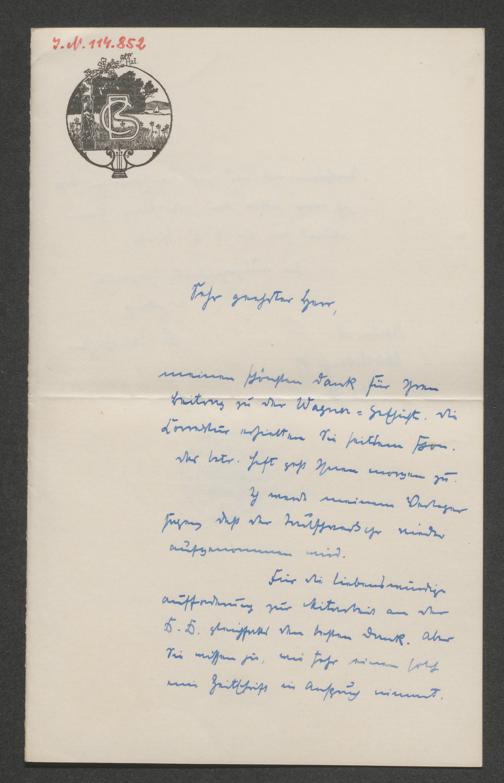 J.N. 114.852
BS
Sehr geehrter Herr,
meinen schönsten Dank für Ihren
Beitrag zu der Wagner=Heft. Die
Correctur erhielten Sie seitdem schon.
Das betr. Heft geht Ihnen morgen zu.
Ich werde meinem Verleger
sagen daß der wieder
aufgenommen wird.
Für die liebenswürdige
Aufforderung zur Mitarbeit an der
gleichfalls den besten Dank. Aber
Sie wissen ja, wie sehr einen solch
eine Zeitschrift in Anspruch nimmt.